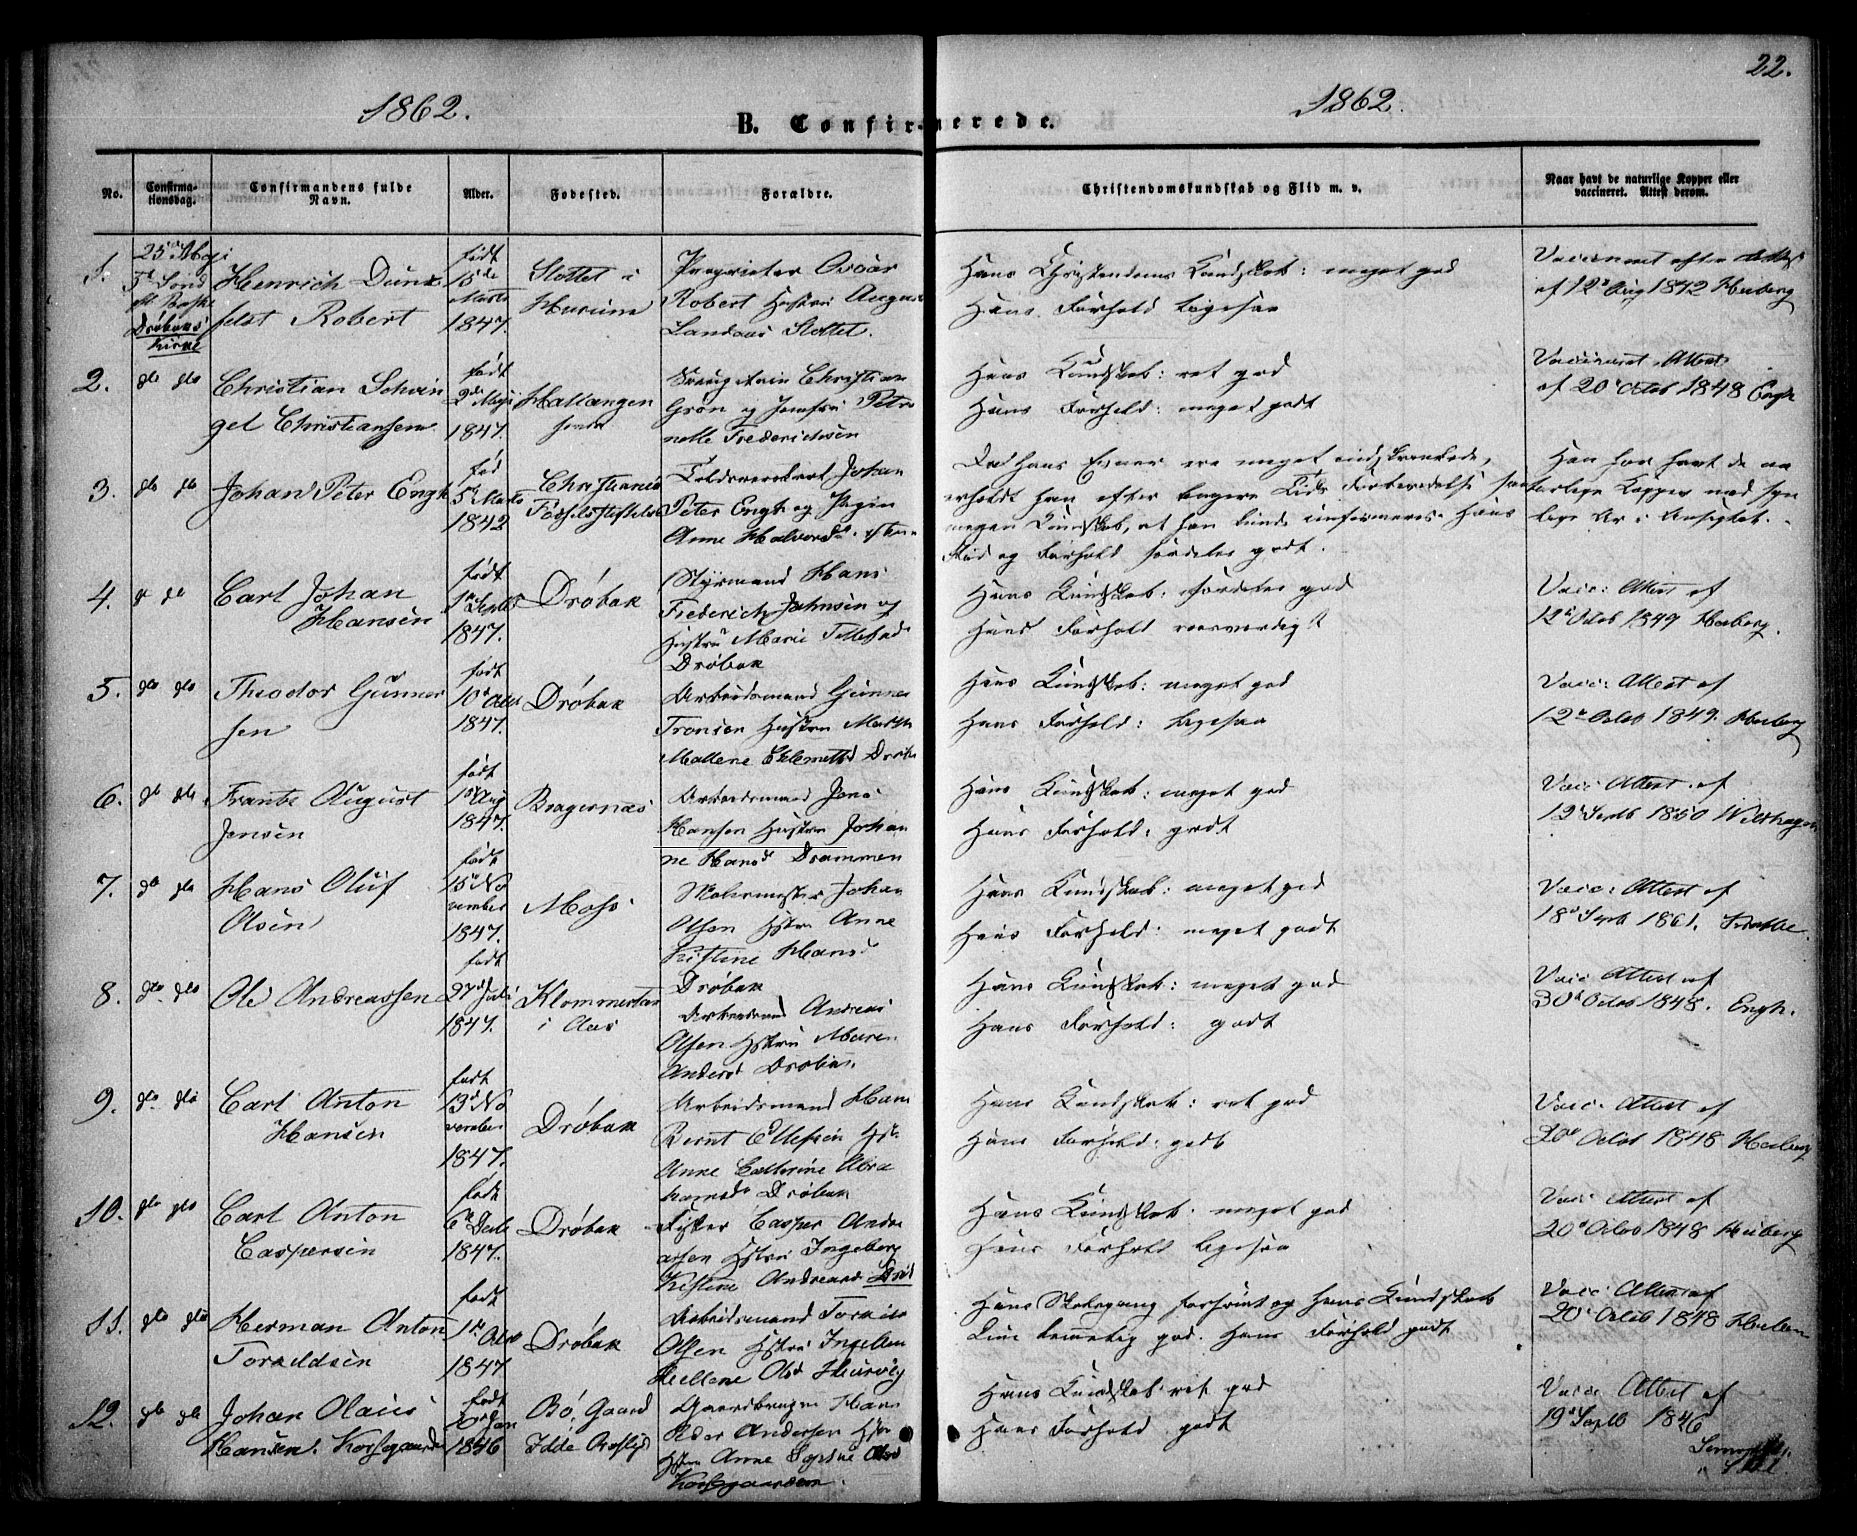 22.
1862.
1862.
B. Confirmerede.
No.
Confirma-
tionsdag.
Confirmandens fulde
Navn.
Alder.
Fødested.
Forældre.
Christendomskundskab og Flid m. v.
Naar havt de naturlige Kopper eller
vaccineret. Attest derom.
1.
25de Maji
Drøbaks
Kirke
Henrich Dunk
feldt Robert
født
15de
Marts
1847.
Slottet i
Hurum
Proprietær
Robert Hustru
Slottet.
Hans Christendoms Kundskab: meget god
Hans Forhold ligesaa
Vaccineret efter Attest
af 12 Aug 1842 Heiberg
2.
dto dto
Christian Schwin
gel Christiansen
født
2d Maji
1847.
Hallangen
Christian
Grøn og Petro
nelle Frederichsen
Hans Kundskab: ret god
Hans Forhold: meget godt
Vaccineret Attest
af 20 Octob 1848 Engh
3.
do do
Johan Peter Engh
fød
5 Marts
1842
Christiania
Fødselsstiftelse
Johan
Peter Engh og Pigen
Anne Halvorsd
Hans Evner ere meget indskrænkede,
erholdt han efter længere Tids Forberedelse saa
megen Kundskab, at han kunde confirmeres. Hans
Flid og Forhold særdeles godt.
Han har havt de na
turlige Kopper med syn
lige Ar i Ansigtet.
4.
Carl Johan
Hansen
født
1 Septbr
1847.
Drøbak
Styrmand Hans
Frederich Johnsen og
Hustru Marie
Drøbak
Hans Kundskab: særdeles god
Hans Forhold roesværdigt
Vacc: Attest af
12 Octob 1849 Heiberg.
5.
dto dto
Theodor Gunner
sen
født
10d
1847.
Drøbak
Arbeidsmand Gunner
Tronsen Hustru
Mallene Drøbak
Hans Kundskab: meget god
Hans Forhold: ligesaa
Vacc: Attest af
12 Octob 1849. Heiberg
6.
do dto
Frantz August
Jensen
født
Aug
1847.
Bragernæs
Arbeidsmand Jens
Hansen Hustru Johan
ne Hansd Drammen
Hans Kundskab: meget god
Hans Forhold: godt
Vacc: Attest af
12 Septb 1850
7.
do dto
Hans Oluf
Olsen
født
15 No
vember
1847.
Moss
Malermester Johan
Olsen Hstru Anne
Kistine Hansd
Drøbak
Hans Kundskab: meget god
Hans Forhold: meget godt
Vacc: Attest af
18d Septb 1861.
8.
dto dto
Ole Andreassen
født
27d Juli
1847.
i Aas
Arbeidsmand Andreas
Olsen Hstru Maren
Andersd Drøbak
Hans Kundskab: meget god
Hans Forhold: godt
Vacc Attest af
30 Octob 1848. Engh.
9.
dto dto
Carl Anton
Hansen
født
13d No
vember
1847.
Drøbak
Arbeidsmand Hans
Bernt Ellefsen Hst.
Anne Cathrine Abra
hamsdr Drøbak
Hans Kundskab: ret god
Hans Forhold: godt
Vacc. Attest af
20 Octob 1848 Heiberg
10.
dto dto
Carl Anton
Caspersen
født
6d Decb
1847.
Drøbak
Fisker Casper Andre
assen Hstru Ingeborg
Kistine Andreasd
Hans Kundskab: meget god
Hans Forhold ligesaa
Vacc: Attest af
20 Octob 1848 Heiberg
11.
dto dto
Herman Anton
Torkildsen
født
1d
1847
Drøbak
Arbeidsmand
Olsen Hstru
Hellene Olsd
Hans Skolegang forsømt og hans Kundskab
kun temmelig god. Hans Forhold godt
Vacc: Attest af
20 Octob 1848
12.
do do
Johan Olaus
Hansen. Korsgaarden
født
Jan
1846
Bø Gaard
Idde
Gaardbruger Hans
Peder Andersen
Anne
Korsgaarden.
Hans Kundskab ret god
Hans Forhold godt
Vacc: Attest af
19 Septb 1846